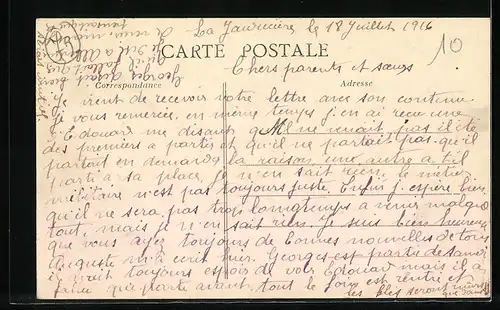 La Jaunicière le 18 Juillet 1916
CARTE POSTALE
Chers parents et sœurs
Correspondance
Adresse
Je vient de recevoir votre lettre avec son contenu
je vous remercie, en même temps j'en ai reçu une
d'Edouard me disant qu'il ne venait pas il été
des premiers a partir et qu'il ne partait pas qu'il
partait en demande la raison une autre a t'il
parti a sa place je n'en sait rien, le métier
militaire n'est pas toujours juste. Enfin j'espère bien
qu'il ne sera pas trop longtemps a venir malgré
tout, mais je n'en sait rien. Je suis bien heureux
que vous ayez toujours de bonnes nouvelles de tous
Auguste m'a écrit hier. Georges est parti de samedi
il avait toujours espoir de voir Edouard mais il a
fallu qu'il parte avant tout le foin est rentré et
les blés seront murs
10